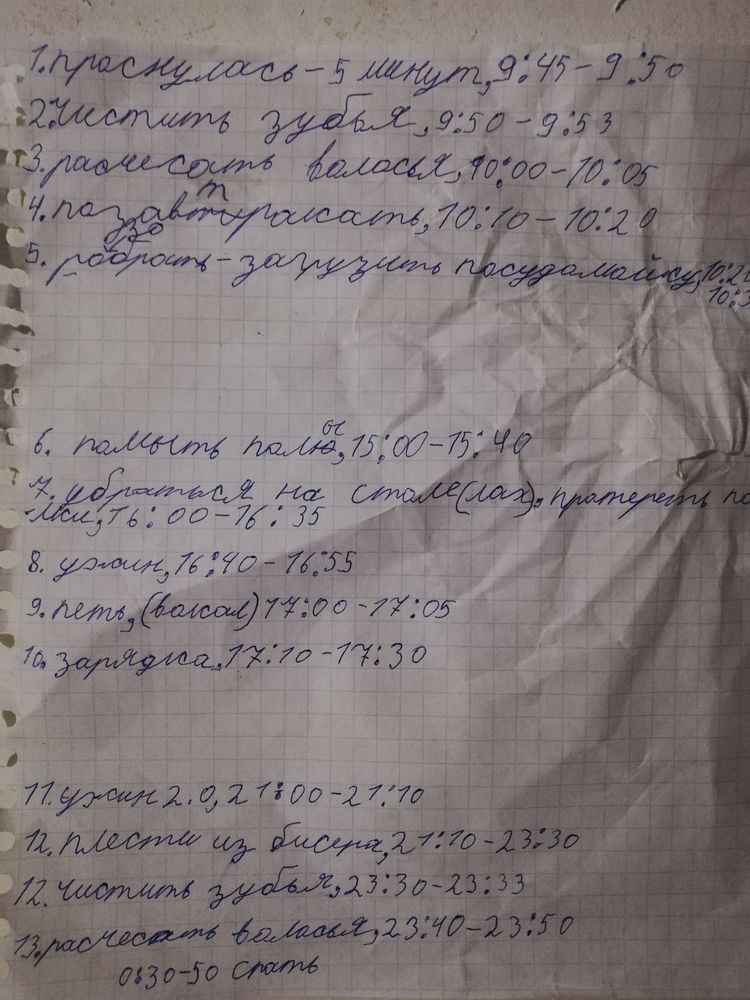 1. праснулась - 5 минут, 9:45 - 9:50
2. чистить зубья, 9:50 - 9:53
3. расчесать валасья, 10:00 - 10:05
4. позавтиракать, 10:10 - 10:20
5. - загрузить посудамойку, 10:2
10:3
6. памыть палы, 15:00 - 15:40
7. убраться на стале(лах), пратереть по
-лки, 16:00 - 16:35
8. ужин, 16:40 - 16:55
9. петь, (вокал) 17:00 - 17:05
10. зарядка, 17:10 - 17:30
11. ужин 2.0, 21:00 - 21:10
12. плести из бисера, 21:10 - 23:30
12. чистить зубья, 23:30 - 23:33
13. расчесать валасья, 23:40 - 23:50
0:30-50 спать